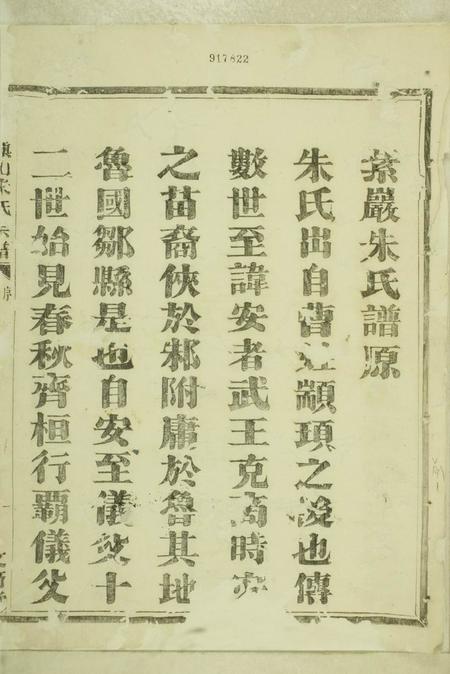 917822
紫巖朱氏譜源
朱氏出自曹姓顓頊之後也傳
數世至諱安者武王克商時
之苗裔俠於邾附庸於魯其地
魯國鄒縣是也自安至儀父十
二世始見春秋齊桓行霸儀父
朱氏宗譜
序